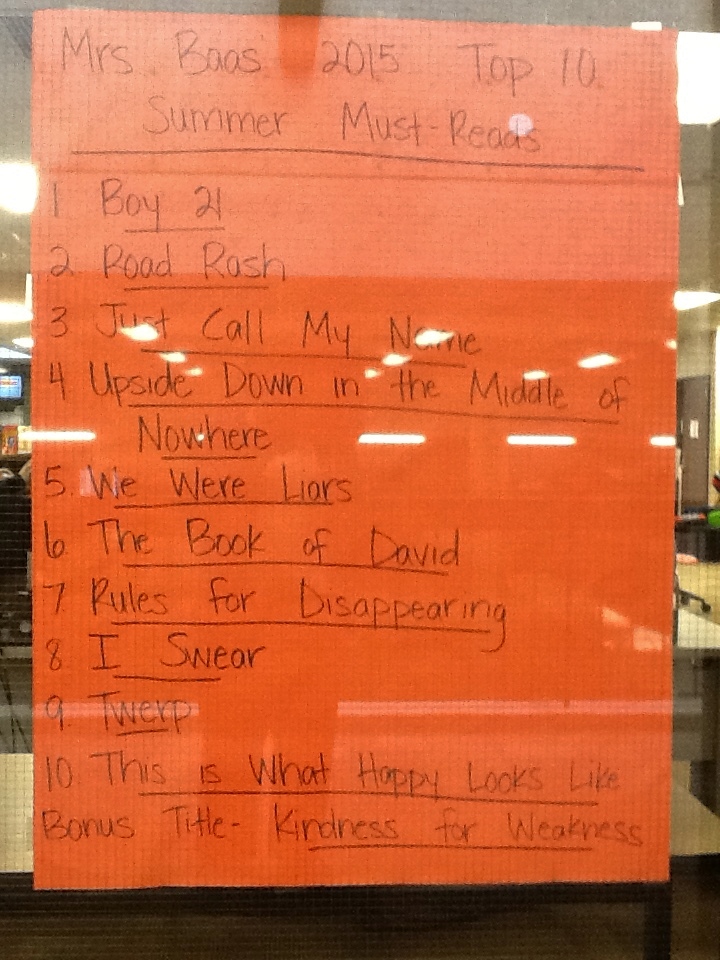 Mrs. Baas' 2015 Top 10
Summer Must-Reads
1 Boy 21
2 Road Rash
3 Just Call My Name
4 Upside Down in the Middle of
Nowhere
5. We Were Liars
6 The Book of David
7 Rules for Disappearing
8 I Swear
9. Twerp
10. This is What Happy Looks Like
Bonus Title- Kindness for Weakness